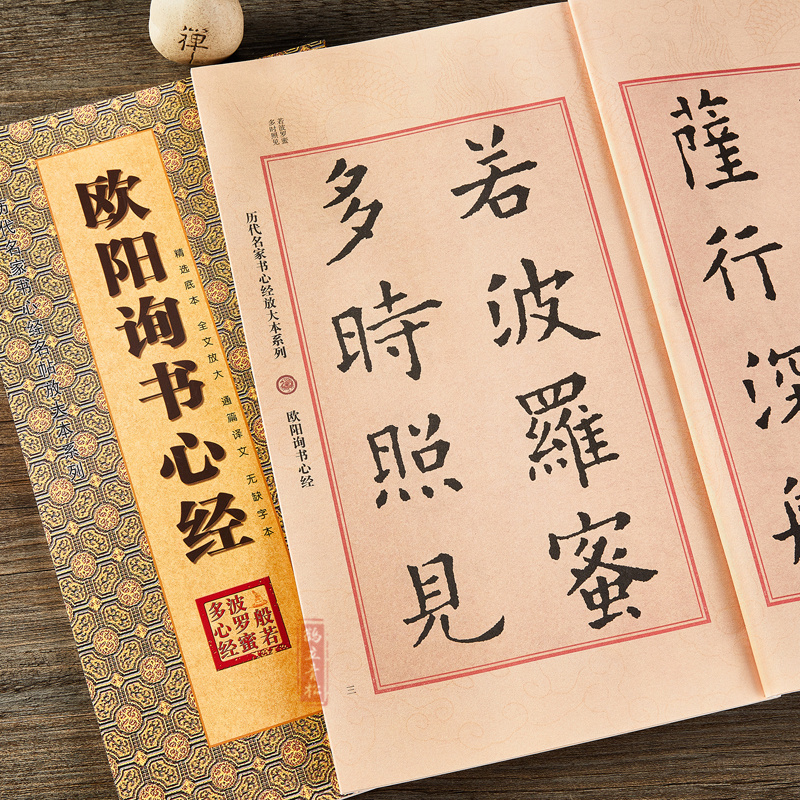 禅
历代名家书心经名帖放大本系列
欧阳询书心经
精选底本 全文放大 通篇译文 无缺字本
般若
波罗蜜
多心经
若波罗蜜
多时照见
历代名家书心经放大本系列
欧阳询书心经
薩行深般
若波羅蜜
多時照見
三